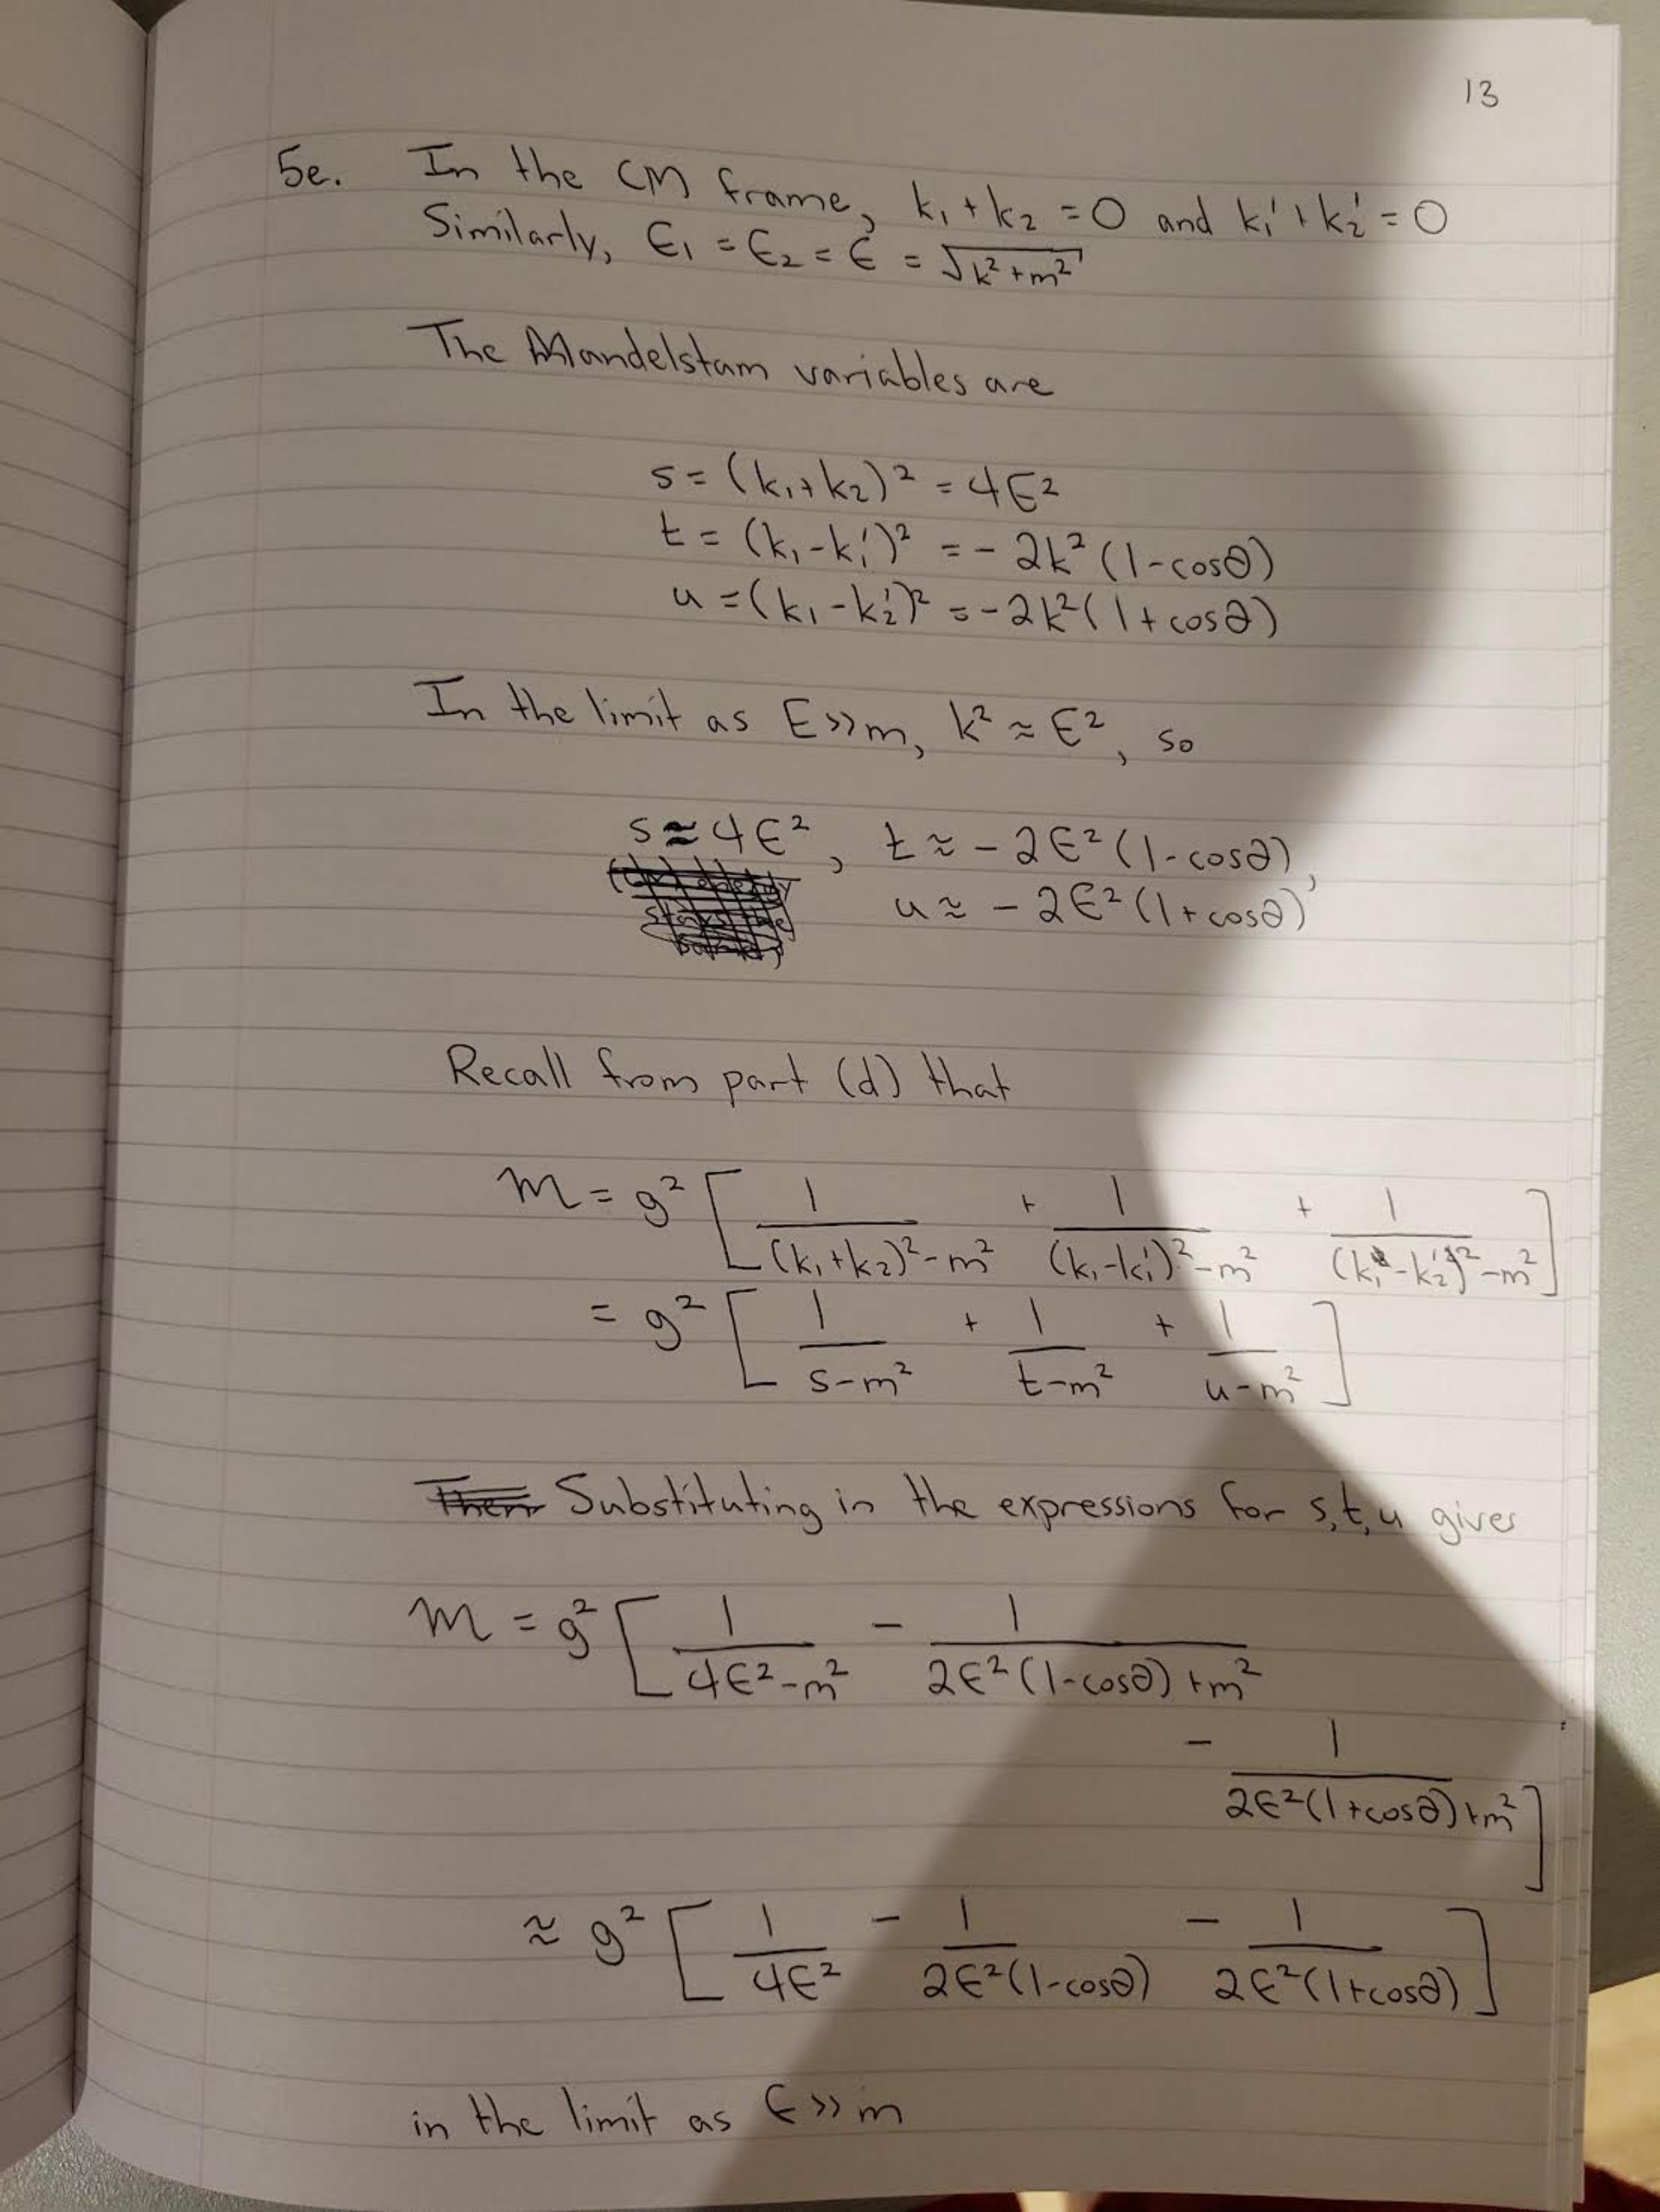 13
5e. In the CM frame, k₁ + k₂ = 0 and k₁' + k₂' = 0
Similarly, ϵ₁ = ϵ₂ = ϵ = √(k² + m²)
The Mandelstam variables are
s = (k₁ + k₂)² = 4ϵ²
t = (k₁ - k₁')² = - 2k² (1 - cosθ)
u = (k₁ - k₂')² = - 2k² (1 + cosθ)
In the limit as E >> m, k² ≈ ϵ², so
s ≈ 4ϵ², t ≈ - 2ϵ² (1 - cosθ),
u ≈ - 2ϵ² (1 + cosθ)
Recall from part (d) that
M = g² [ 1/((k₁ + k₂)² - m²) + 1/((k₁ - k₁')² - m²) + 1/((k₁ - k₂')² - m²) ]
= g² [ 1/(s - m²) + 1/(t - m²) + 1/(u - m²) ]
Then Substituting in the expressions for s, t, u gives
M = g² [ 1/(4ϵ² - m²) - 1/(2ϵ² (1 - cosθ) + m²)
- 1/(2ϵ² (1 + cosθ) + m²) ]
≈ g² [ 1/(4ϵ²) - 1/(2ϵ² (1 - cosθ)) - 1/(2ϵ² (1 + cosθ)) ]
in the limit as ϵ >> m